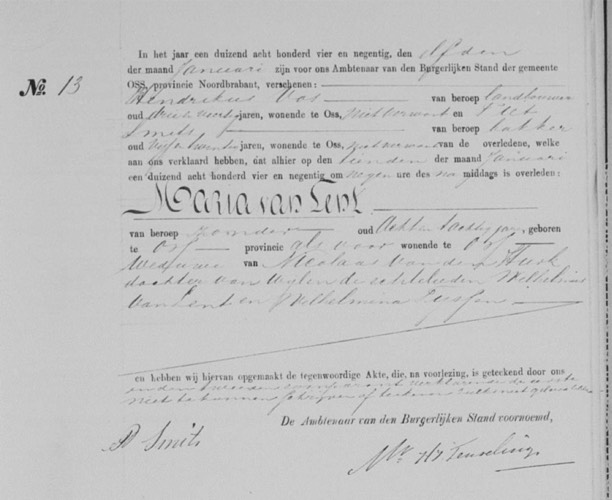 In het jaar een duizend acht honderd vier en negentig, den Elfden
der maand Januari zijn voor ons Ambtenaar van den Burgerlijken Stand der gemeente
No. 13
OSS, provincie Noordbrabant, verschenen:
Hendrikus Vos van beroep landbouwer
oud jaren, wonende te Oss, niet verwant en
Smits van beroep bakker
oud jaren, wonende te Oss, niet verwant van de overledene, welke
aan ons verklaard hebben, dat alhier op den tienden der maand Januari
een duizend acht honderd vier en negentig om negen ure des na middags is overleden:
Maria van Lent
van beroep zonder oud Acht en tachtig jaar, geboren
te Oss provincie als voor wonende te Oss
Weduwe van Nicolaas van den Hurk
dochter van wijlen de echtelieden Wilhelmus
van Lent en Wilhelmina
en hebben wij hiervan opgemaakt de tegenwoordige Akte, die, na voorlezing, is geteekend door ons
en den tweeden comparant verklarende de eerste
niet te kunnen schrijven of teekenen
De Ambtenaar van den Burgerlijken Stand voornoemd,
Smits